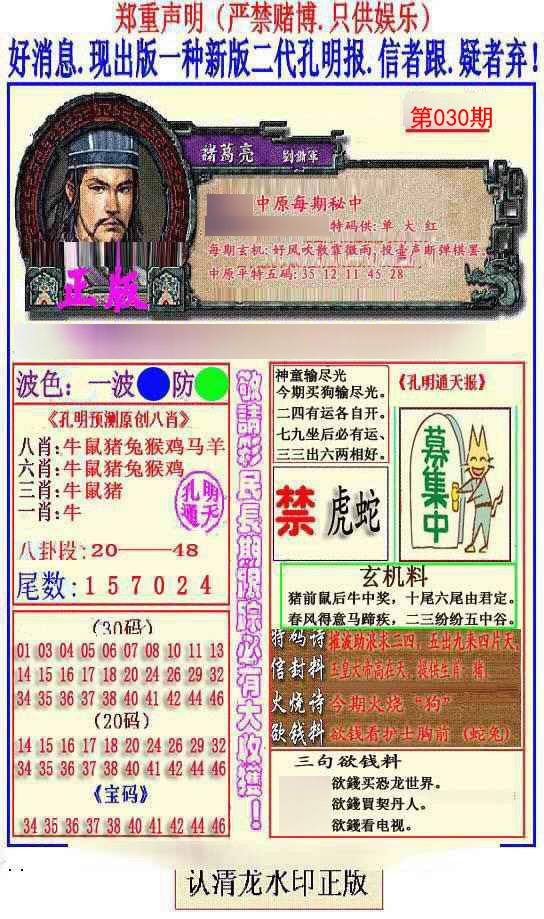 郑重声明（严禁赌博.只供娱乐）
好消息.现出版一种新版二代孔明报.信者跟.疑者弃！
第030期
諸葛亮
中原每期秘中
特码供: 单 大 红
每期玄机: 好风吹散霏微雨, 投壶声断弹棋罢.
中原平特五码: 35 12 11 45 28
正版
波色: 一波 防
《孔明预测原创八肖》
八肖: 牛鼠猪兔猴鸡马羊
六肖: 牛鼠猪兔猴鸡
三肖: 牛鼠猪
一肖: 牛
孔明
通天
八卦段: 20——48
尾数: 1 5 7 0 2 4
(30码)
01 03 04 05 06 07 08 10 11 13
14 15 16 17 18 20 24 26 29 32
34 35 37 38 40 41 42 44 45 46
(20码)
14 15 16 17 18 20 24 26 29 32
34 35 37 38 40 41 42 44 45 46
《宝码》
34 35 37 38 40 41 42 44 46
敬請彩民長期跟踪必有大收獲！
神童输尽光
今期买狗输尽光。
二四有运各自开。
七九坐后必有运、
三三出六两相好。
《孔明通天报》
禁
虎蛇
募集中
玄机料
猪前鼠后牛中奖，十尾六尾由君定。
春风得意马蹄疾，二三纷纷五中谷。
特码诗
浪求三四, 五出九来四片天
信封料
玉皇大帝高在天, 提供生肖: 猪.
火烧诗 今期火烧“狗”
欲钱料 欲钱看护士胸前 (蛇兔)
三句欲钱料
欲錢买恐龙世界。
欲錢買契丹人。
欲錢看电视。
认清龙水印正版